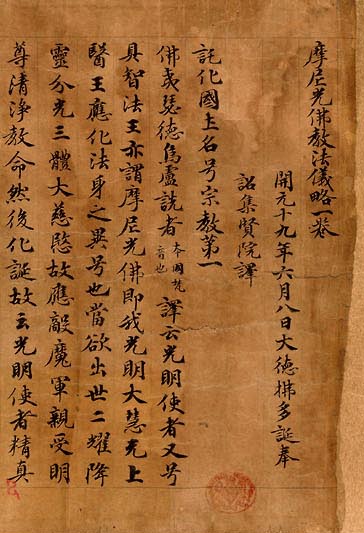 摩尼光佛教法儀略一卷
開元十九年六月八日大德拂多誕奉
詔集賢院譯
託化國主名号宗教第一
佛夷瑟德烏盧詵者本國梵音也譯云光明使者又号
具智法王亦謂摩尼光佛即我光明大慧无上
醫王應化法身之異号也當欲出世二耀降
靈分光三體大慈愍故應敵魔軍親受明
尊清淨教命然後化誕故云光明使者精真